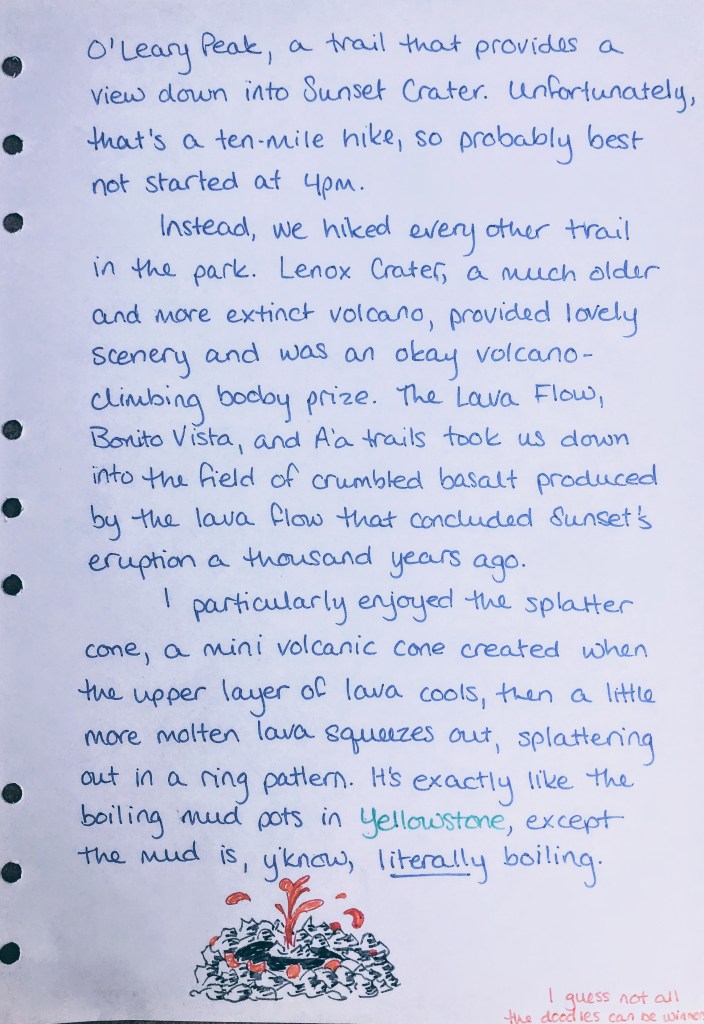 O'Leary Peak, a trail that provides a
view down into Sunset Crater. Unfortunately,
that's a ten-mile hike, so probably best
not started at 4pm.
Instead, we hiked every other trail
in the park. Lenox Crater, a much older
and more extinct volcano, provided lovely
scenery and was an okay volcano-
climbing booby prize. The Lava Flow,
Bonito Vista, and A'a trails took us down
into the field of crumbled basalt produced
by the lava flow that concluded Sunset's
eruption a thousand years ago.
I particularly enjoyed the splatter
cone, a mini volcanic cone created when
the upper layer of lava cools, then a little
more molten lava squeezes out, splattering
out in a ring pattern. It's exactly like the
boiling mud pots in Yellowstone, except
the mud is, y'know, literally boiling.
I guess not all
the doodles can be